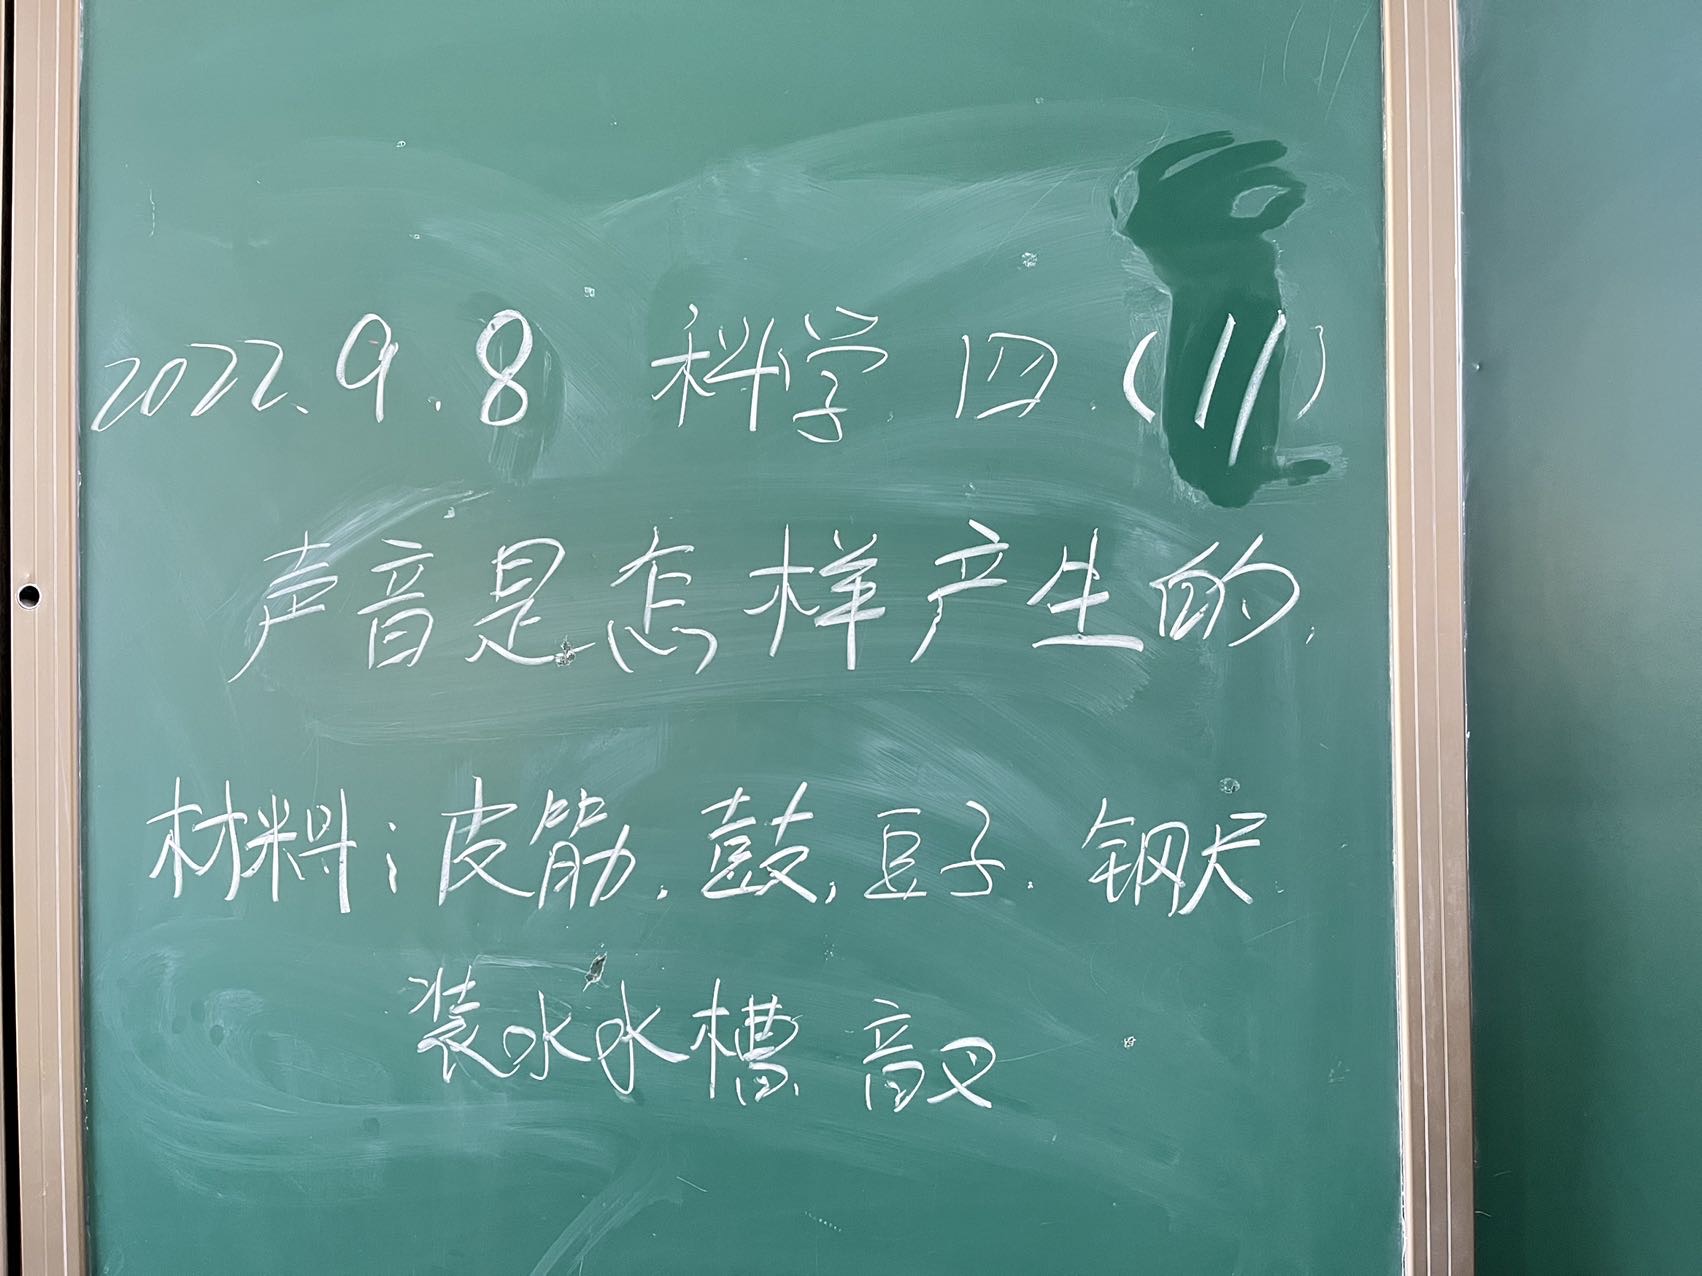 2022.9.8 科学 四.(11)
声音是怎样产生的.
材料:皮筋.鼓,豆子.钢尺
装水水槽 音叉